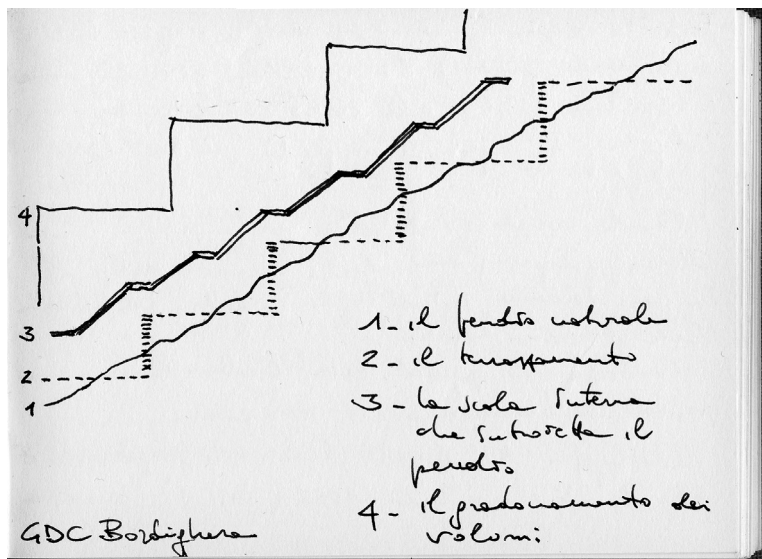 4
3
2
1
1- il pendio naturale
2- il terrazzamento
3- la scala interna
che introietta il
pendio
4- il gradonamento dei
volumi
GDC Bordighera